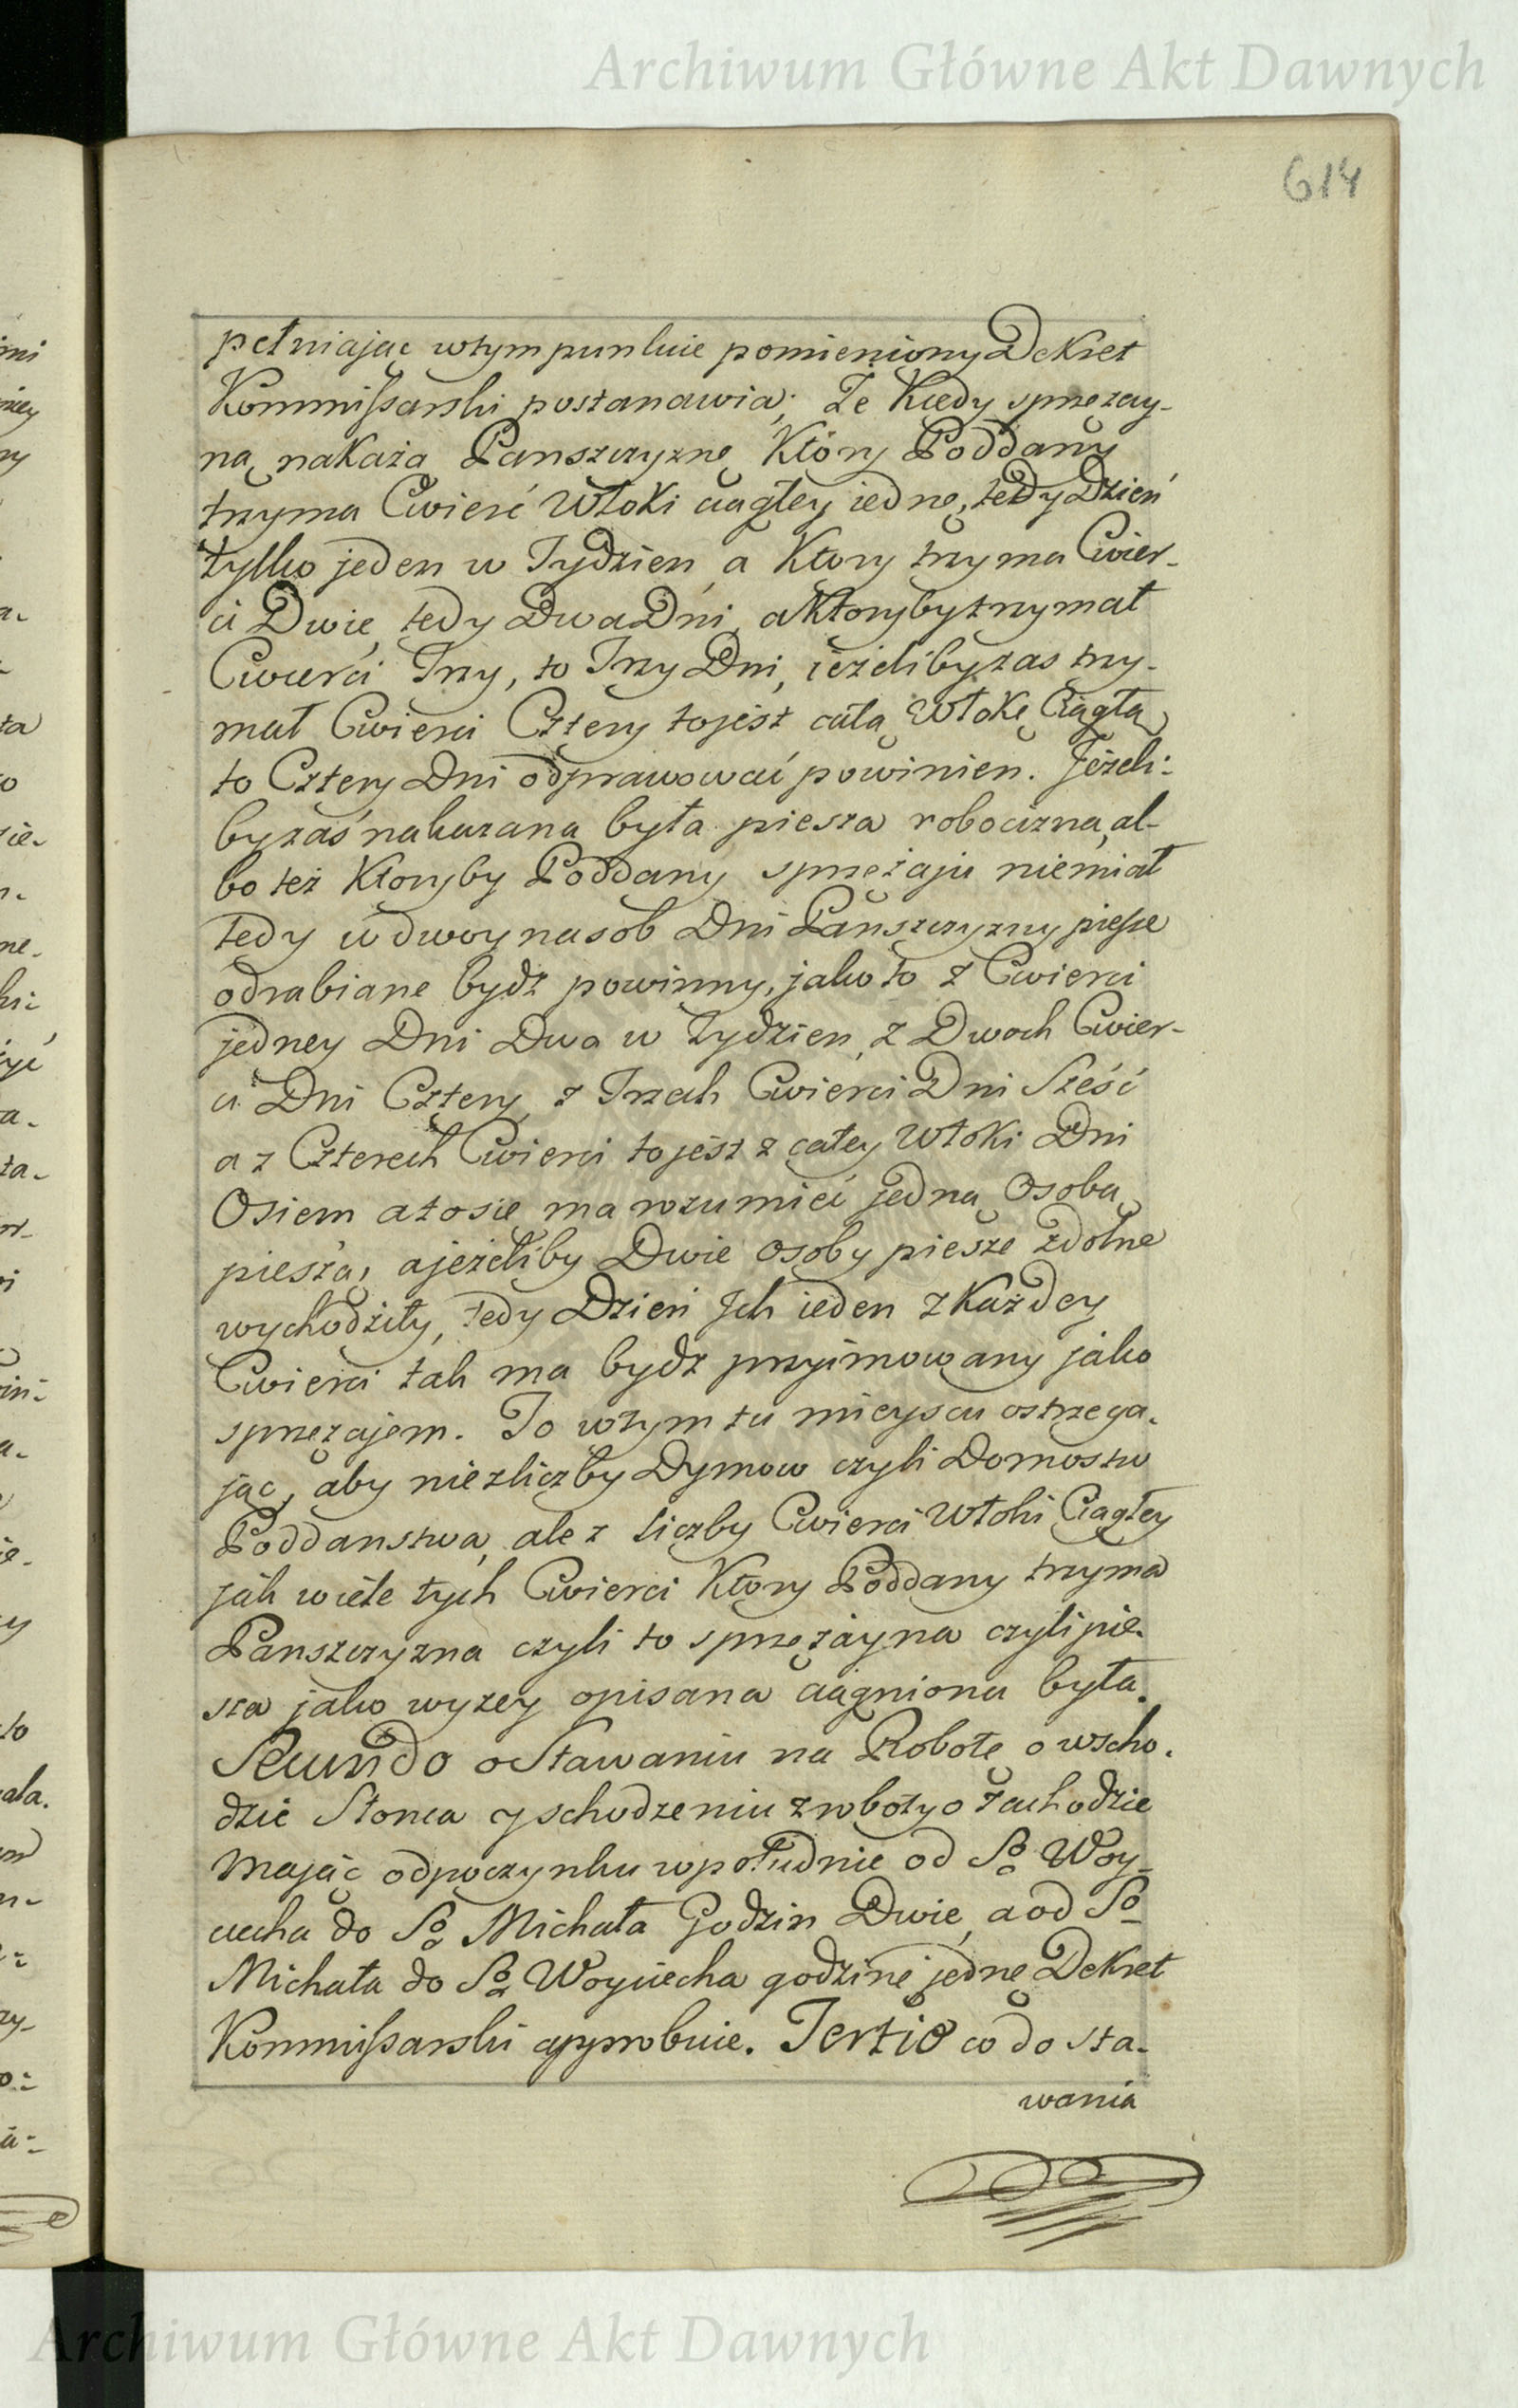 Archiwum Główne Akt Dawnych
614
pełniaiąc wtym punkcie pomieniony Dekret
Kommissarski postanawia; Ze Kiedy sprzęzay-
ną nakażą Panszczyznę Który Poddany
trzyma Cwierć Włoki ciągłey iednę, tedy Dzień
tylko jeden w Tydzien, a Ktory trzyma Cwier-
ci Dwie, tedy Dwa Dni, a Ktoryby trzymał
Cwierci Trzy, to Trzy Dni, ieżeliby zas trzy-
mał Cwierci Cztery to jest całą Włokę Ciągłą
to Cztery Dni odprawować powinien. Jeżeli-
by zaś nakazana była piesza robocizna, al-
bo też Ktoryby Poddany sprzężaju niemiał
tedy w dwoynasob Dni Panszczyzny piesze
odrabiane bydz powinny, jako to z Cwierci
jedney Dni Dwa w tydzien, z Dwoch Cwier-
ci Dni Cztery, z Trzech Cwierci Dni Sześć
a z Czterech Cwierci to jest z całey Włoki Dni
Osiem a to się ma rozumieć jedną Osobą
pieszą, a jeżeliby Dwie osoby piesze zdolne
wychodziły, tedy Dzień Jch ieden z Każdey
Cwierci tak ma bydz przyimowany jako
sprzęzajem. To wtym tu mieyscu ostrzega-
jąc, aby niezliczby Dymow czyli Domostw
Poddanstwa, ale z liczby Cwierci Włoki Ciągłey
jak wiele tych Cwierci Ktory Poddany trzyma
Panszczyzna czyli to sprzężayna czyli pie-
sza jako wyzey opisana ciągniona była.
Secundo o Stawaniu na Robotę o wscho-
dzie Słonca y schodzeniu z roboty o zachodzie
mając odpoczynku w południe od So Woy-
ciecha do So Michała Godzin Dwie, a od So
Michała do So Woyciecha godzinę jednę Dekret
Kommissarski approbuie. Tertio co do sta-
wania
Archiwum Główne Akt Dawnych